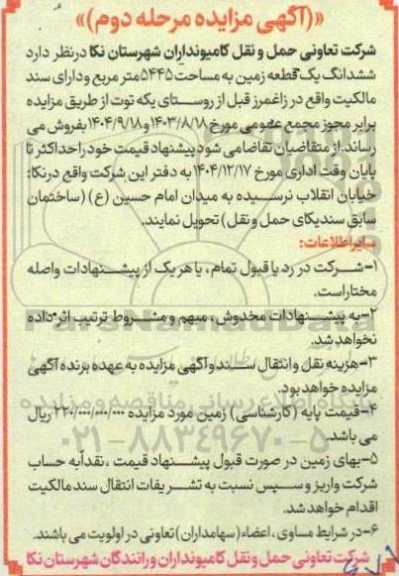 «(آگهی مزایده مرحله دوم)»
شرکت تعاونی حمل و نقل کامیونداران شهرستان نکا درنظر دارد
ششدانگ یک قطعه زمین به مساحت ۵۴۴۵متر مربع و دارای سند
مالکیت واقع در زاغمرز قبل از روستای یکه توت از طریق مزایده
برابر مجوز مجمع عمومی مورخ ۱۴۰۳/۸/۱۸ و ۱۴۰۴/۹/۱۸ بفروش می
رساند. از متقاضیان تقاضا می شود پیشنهاد قیمت خود را حداکثر تا
پایان وقت اداری مورخ ۱۴۰۴/۱۲/۱۷ به دفتر این شرکت واقع درنکا:
خیابان انقلاب نرسیده به میدان امام حسین (ع) (ساختمان
سابق سندیکای حمل و نقل) تحویل نمایند.
سایر اطلاعات:
۱-شرکت در رد یا قبول تمام ، یا هر یک از پیشنهادات واصله
مختار است.
۲-به پیشنهادات مخدوش ، مبهم و مشروط ترتیب اثر داده
نخواهد شد.
۳-هزینه نقل و انتقال سند و آگهی مزایده به عهده برنده آگهی
مزایده خواهد بود.
۴-قیمت پایه (کارشناسی) زمین مورد مزایده ۲۲۰/۰۰۰/۰۰۰/۰۰۰ ریال
می باشد.
۵-بهای زمین در صورت قبول پیشنهاد قیمت ، نقداً به حساب
شرکت واریز و سپس نسبت به تشریفات انتقال سند مالکیت
اقدام خواهد شد.
۶-در شرایط مساوی ، اعضاء (سهامداران) تعاونی در اولویت می باشند.
شرکت تعاونی حمل و نقل کامیونداران و رانندگان شهرستان نکا
ParsNamadData
پایگاه اطلاع رسانی مناقصه و مزایده
۰۲۱-۸۸۳۴۹۶۷۰-۵